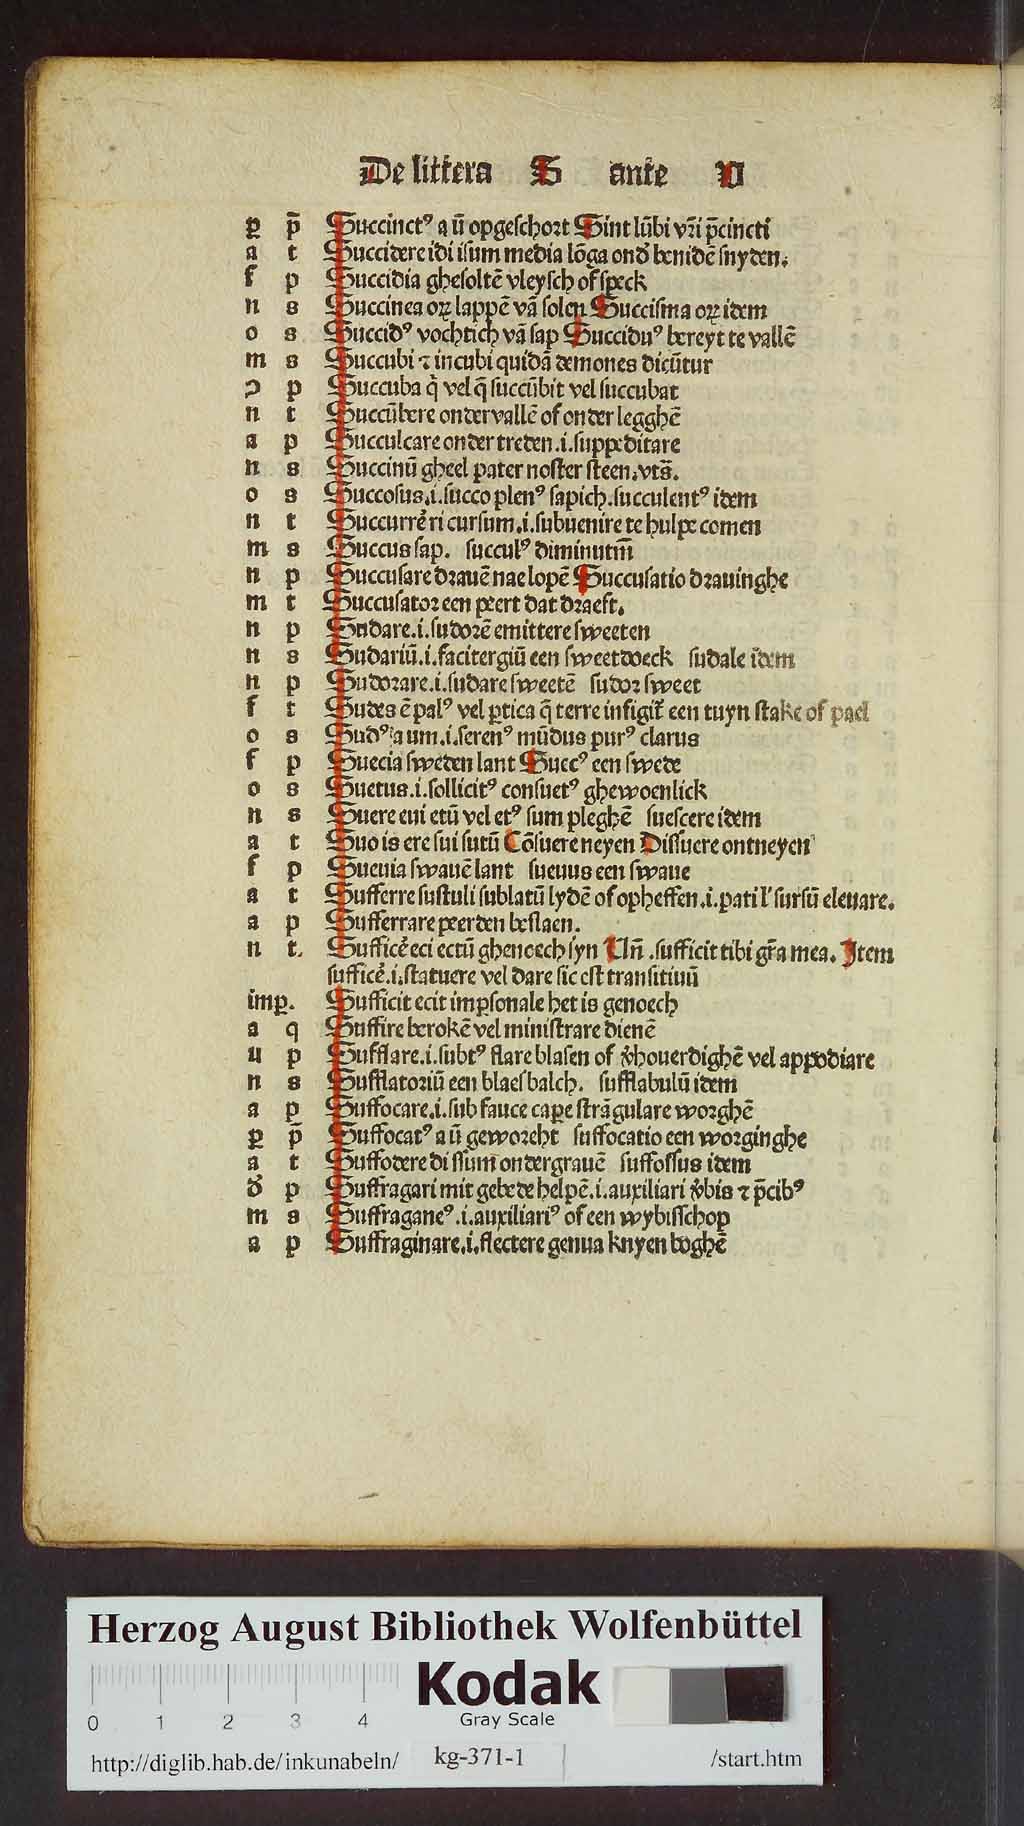 De littera S ante V
ꝑ p̄ Succinctꝰ a ū opgeschort Sint lūbi vr̄i p̄cincti
a t Succidere idi isum media lōga ondˀ benidē snyden.
f p Succidia ghesoltē vleysch of speck
n s Succinea oꝝ lappē vā solen Succisma oꝝ idem
o s Succidꝰ vochtich vā sap Succiduꝰ bereyt te vallē
m s Succubi ⁊ incubi quidā demones dicūtur
ɔ p Succuba q̇ vel q̄ succūbit vel succubat
n t Succūbere ondervallē of onder legghē
a p Succulcare onder treden .i. suppeditare
n s Succinū gheel pater noster steen. vts̄.
o s Succosus .i. succo plenꝰ sapich. succulentꝰ idem
n t Succurrė ri cursum .i. subuenire te hulpe comen
m s Succus sap. succulꝰ diminutm̄
n p Succusare drauē nae lopē Succusatio drauinghe
m t Succusator een peert dat draeft.
n p Sndare .i. sudorē emittere sweeten
n s Sudariū .i. facitergiū een sweetdoeck sudale idem
n p Sudorare .i. sudare sweetē sudor sweet
f t Sudes ē palꝰ vel ꝑtica q̄ terre infigit᷑ een tuyn stake of pael
o s Sudꝰ a um .i. serenꝰ mūdus purꝰ clarus
f p Suecia sweden lant Succꝰ een swede
o s Suetus .i. sollicitꝰ consuetꝰ ghewoenlick
n s Suere eui etū vel etꝰ sum pleghē suescere idem
a t Suo is ere sui sutū Cōsuere neyen Dissuere ontneyen
f p Sueuia swauē lant sueuus een swaue
a t Sufferre sustuli sublatū lydē of opheffen .i. pati lˀ sursū eleuare.
a p Sufferrare peerden beslaen.
n t. Sufficė eci ectū ghenoech syn Vn̄ .sufficit tibi gr̄a mea. Item
sufficė .i. statuere vel dare sic est transitiuū
imꝑ. Sufficit ecit imꝑsonale het is genoech
a q Suffire berokē vel ministrare dienē
u p Sufflare .i. subtꝰ flare blasen of v̓houerdighē vel appodiare
n s Sufflatoriū een blaesbalch. sufflabulū idem
a p Suffocare .i. sub fauce caꝑe strāgulare worghē
ꝑ p̄ Suffocatꝰ a ū geworcht suffocatio een worginghe
a t Suffodere di ssum ondergrauē suffossus idem
dˀ p Suffragari mit gebede helpē .i. auxiliari v̓bis ⁊ p̄cibꝰ
m s Suffraganeꝰ .i. auxiliariꝰ of een wybisschop
a p Suffraginare .i. flectere genua knyen boghē
Herzog August Bibliothek Wolfenbüttel
0 1 2 3 4
Kodak
Gray Scale
http://diglib.hab.de/inkunabeln/ kg-371-1 /start.htm